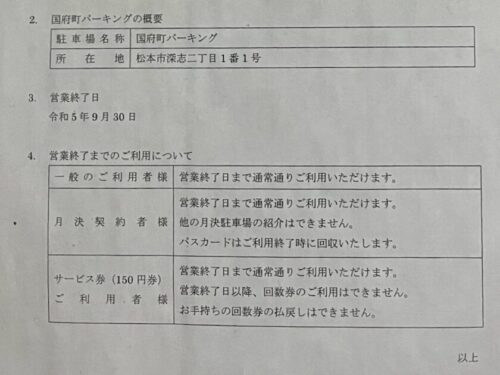 2. 国府町パーキングの概要
駐車場名称 国府町パーキング
所在地 松本市深志二丁目1番1号
3. 営業終了日
令和5年9月30日
4. 営業終了までのご利用について
一般のご利用者様 営業終了日まで通常通りご利用いただけます。
営業終了日まで通常通りご利用いただけます。
月決契約者様 他の月決駐車場の紹介はできません。
パスカードはご利用終了時に回収いたします。
営業終了日まで通常通りご利用いただけます。
サービス券(150円券)
ご利用者様
営業終了日以降、回数券のご利用はできません。
お手持ちの回数券の払戻しはできません。
以上